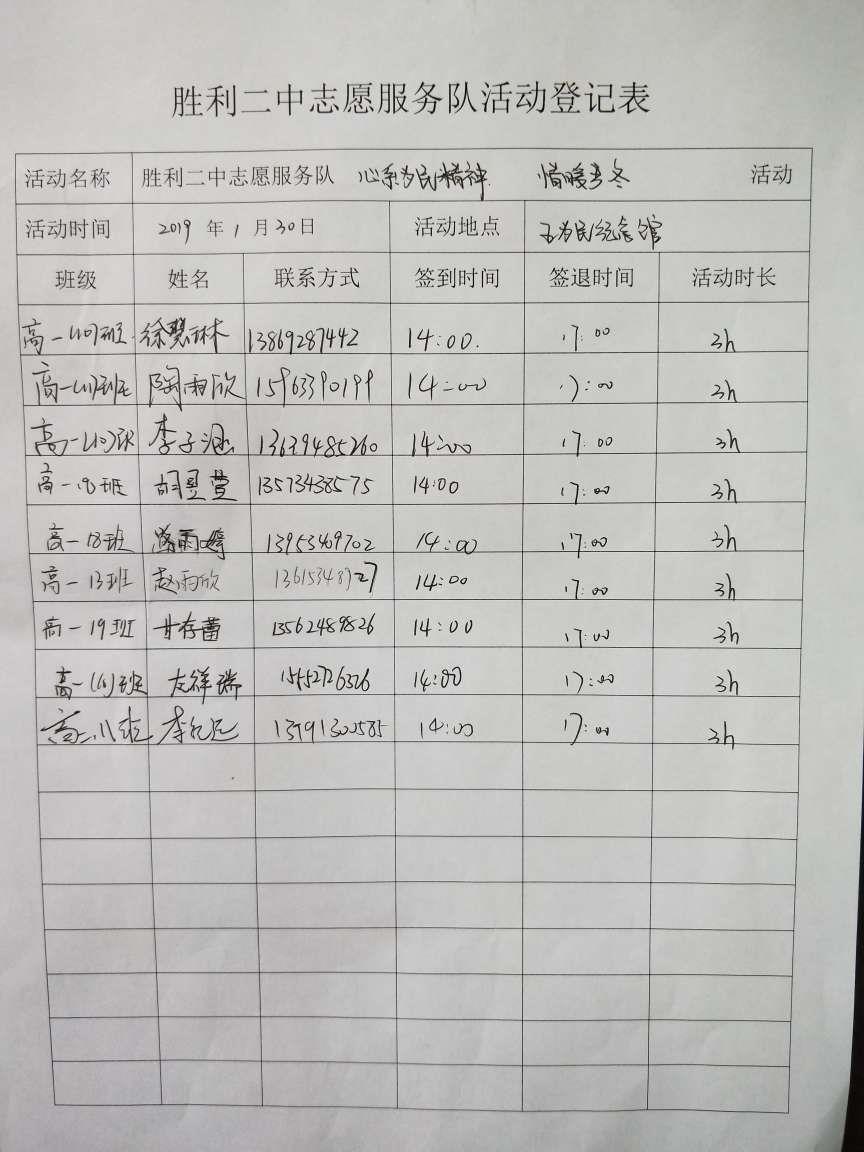 胜利二中志愿服务队活动登记表
活动名称 胜利二中志愿服务队 心系为民精神 情暖寒冬 活动
活动时间 2019 年 1 月 30 日 活动地点 王为民纪念馆
班级 姓名 联系方式 签到时间 签退时间 活动时长
高一(10)班 徐慧琳 13869287442 14:00. 17:00 3h
高一(11)班 陶雨欣 15963390199 14:00 17:00 3h
高一(10)班 李子涵 13639485260 14:00 17:00 3h
高一18班 胡翌萱 13573438575 14:00 17:00 3h
高一18班 雨婷 13953469702 14:00 17:00 3h
高一13班 赵雨欣 14:00 17:00 3h
高一19班 甘存蕾 13562489826 14:00 17:00 3h
高一(10)班 左祥瑞 15552726326 14:00 17:00 3h
高二八班 李 14:00 17:00 3h